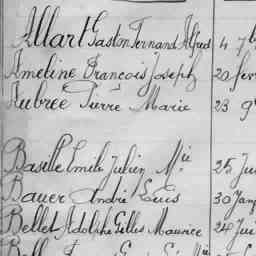 Allart Gaston Fernand Alfred 4 7b
Ameline François Joseph 20 fev
Aubrée Pierre Marie 23 9b
Baselle Emile Julien Mie 25 Jui
Bauer André Louis 30 Janv
Bellet Adolphe Gilles Maurice 24 Jui